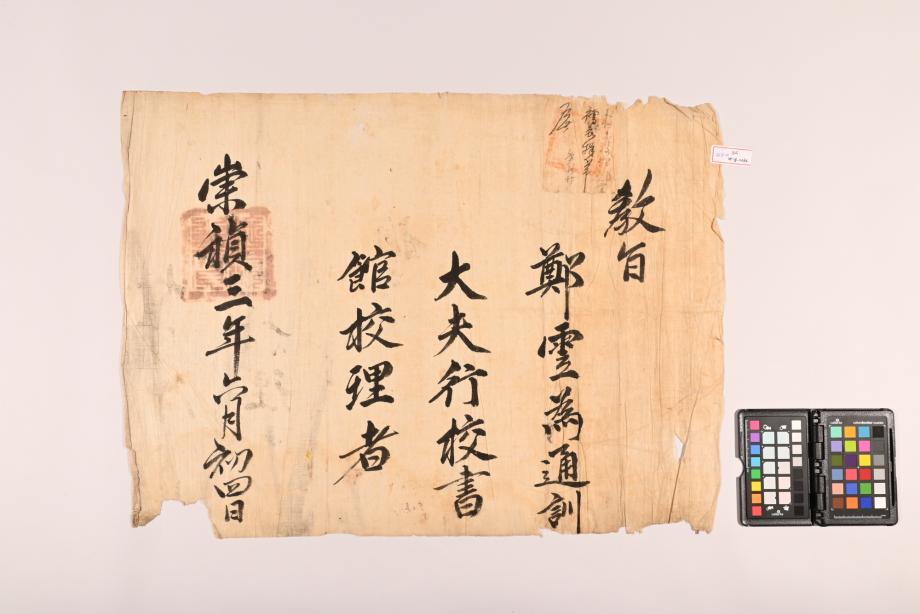 敎旨
鄭雲爲通訓
大夫行校書
館校理者
崇禎三年六月初四日